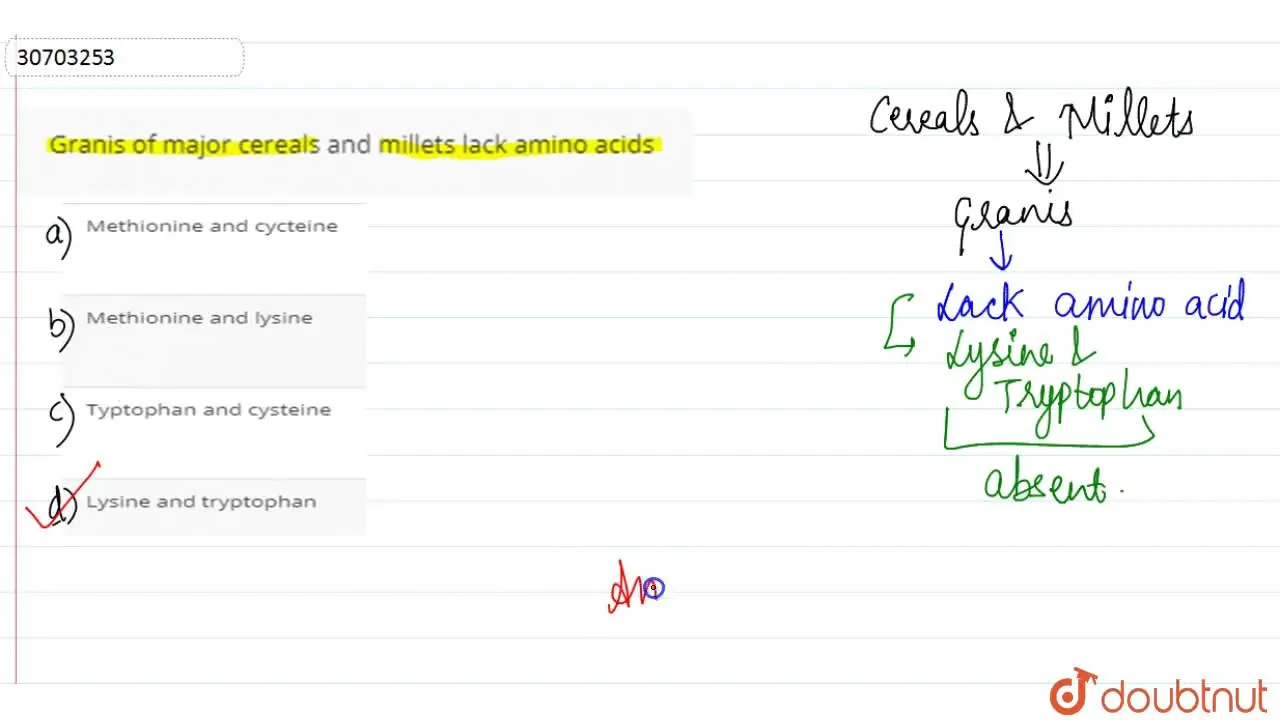 30703253
Granis of major cereals and millets lack amino acids
a) Methionine and cycteine
b) Methionine and lysine
c) Typtophan and cysteine
d) Lysine and tryptophan
Cereals & Millets
Granis
Lack amino acid
Lysine &
Tryptophan
absent.
An
doubtnut